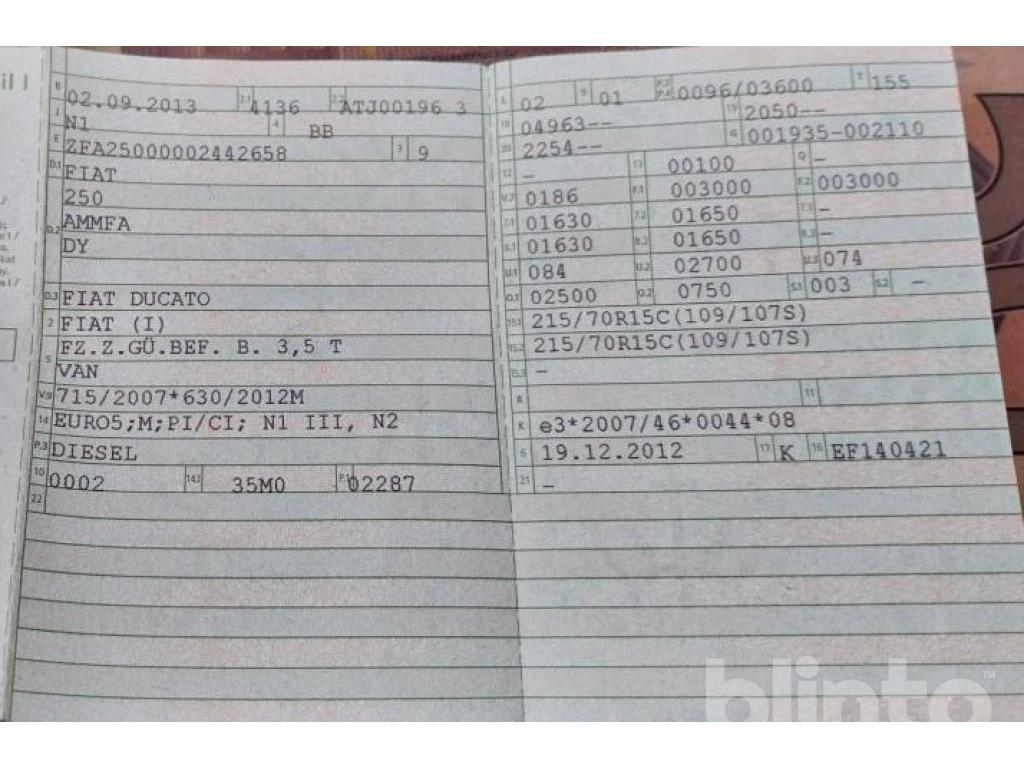 il I
B 02.09.2013 2.1 4136 2.2 ATJ00196 3
J N1 4 BB
E ZFA25000002442658 3 9
D.1 FIAT
250
D.2 AMMFA
DY
D.3 FIAT DUCATO
2 FIAT (I)
5 FZ.Z.GÜ.BEF. B. 3,5 T
VAN
V.9 715/2007*630/2012M
14 EURO5;M;PI/CI; N1 III, N2
P.3 DIESEL
10 0002 14.1 35M0 P.1 02287
22
L 02 9 01 P.2 P.4 0096/03600 T 155
18 04963-- 19 2050--
20 2254-- G 001935-002110
12 – 13 00100 Q –
V.7 0186 F.1 003000 F.2 003000
7.1 01630 7.2 01650 7.3 –
8.1 01630 8.2 01650 8.3 –
U.1 084 U.2 02700 U.3 074
O.1 02500 O.2 0750 S.1 003 S.2 –
15.1 215/70R15C(109/107S)
15.2 215/70R15C(109/107S)
15.3 –
R 11
K e3*2007/46*0044*08
6 19.12.2012 17 K 16 EF140421
21 –
blinto™